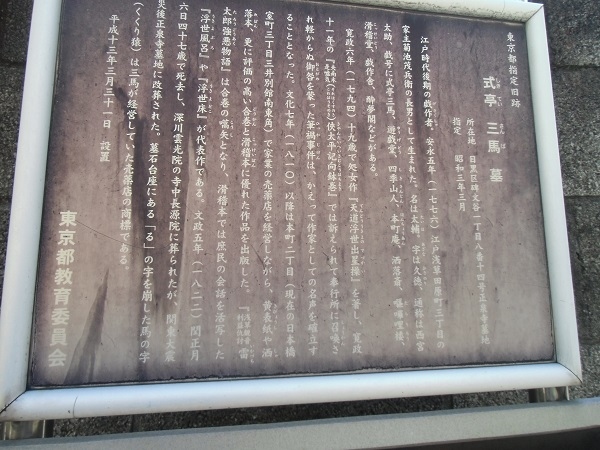 東京都指定旧跡
式亭 三馬 墓
しき てい さん ば
所在地 目黒区碑文谷一丁目八番十四号正泉寺墓地
指定 昭和三年三月
江戸時代後期の戯作者。安永五年(一七七六)江戸浅草田原町三丁目の
家主菊池茂兵衛の長男として生まれた。名は太輔、字は久徳、通称は西宮
太助、戯号に式亭三馬、遊戯堂、四季山人、本町庵、洒落斎、哆囉哩楼、
滑稽堂、戯作舎、酔夢閣などがある。
寛政六年(一七九四)十九歳で処女作『天道浮世出星操』を著し、寛政
十一年の『侠太平記向鉢巻』では訴えられて奉行所に召喚さ
れ軽からぬ御咎を蒙った筆禍事件は、かえって作家としての名声を確立す
ることとなった。文化七年(一八一〇)以降は本町二丁目(現在の日本橋
室町三丁目三井別館南東角)で家業の売薬店を経営しながら、黄表紙や洒
落本、更に評価の高い合巻と滑稽本に優れた作品を出版した。『雷
太郎強悪物語』は合巻の嚆矢となり、滑稽本では庶民の会話を活写した
『浮世風呂』や『浮世床』が代表作である。文政五年(一八二二)閏正月
六日四十七歳で死去し、深川雲光院の寺中長源院に葬られたが、関東大震
災後正泉寺墓地に改葬された。墓石台座にある「る」の字を崩した馬の字
(くくり猿)は三馬が経営していた売薬店の商標である。
平成十三年三月三十一日 設置
東京都教育委員会